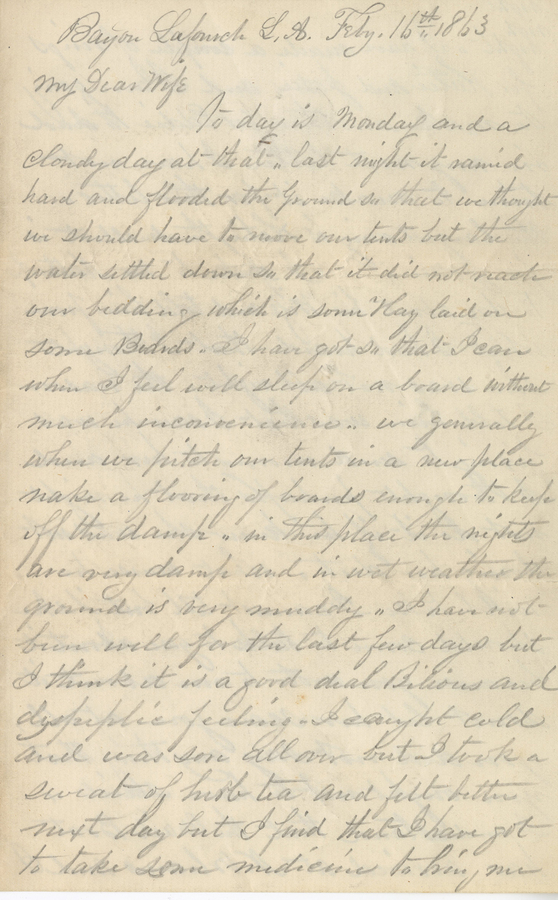 Bayou Lafourch L.A. Feby. 16th 1863
My Dear Wife
To day is Monday and a
cloudy day at that „ last night it rained
hard and flooded the Ground so that we thought
we should have to move our tents but the
water settled down so that it did not reach
our bedding which is some Hay laid on
some Boards. I have got so that I can
when I feel well sleep on a board without
much inconvenience „ we generally
when we pitch our tents in a new place
make a flooring of boards enough to keep
off the damp „ in this place the nights
are very damp and in wet weather the
ground is very muddy „ I have not
been well for the last few days but
I think it is a good deal Bilious and
dyspeptic feeling „ I caught cold
and was sore all over but I took a
sweat of herb tea and felt better
next day but I find that I have got
to take some medicine to bring me